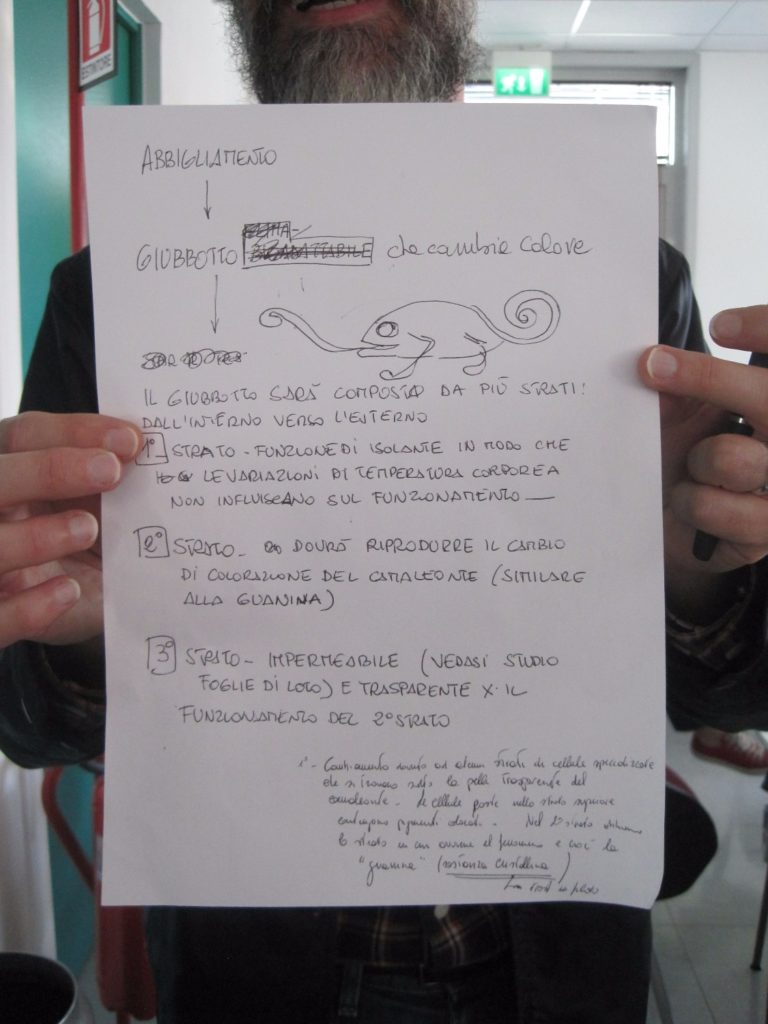 ESTINTORE
ABBIGLIAMENTO
GIUBBOTTO che cambia colore
IL GIUBBOTTO SARÀ COMPOSTO DA PIÙ STRATI:
DALL'INTERNO VERSO L'ESTERNO
1° STRATO - FUNZIONE DI ISOLANTE IN MODO CHE
LE VARIAZIONI DI TEMPERATURA CORPOREA
NON INFLUISCANO SUL FUNZIONAMENTO
2° STRATO - DOVRÀ RIPRODURRE IL CAMBIO
DI COLORAZIONE DEL CAMALEONTE (SIMILARE
ALLA GUANINA)
3° STRATO - IMPERMEABILE (VEDASI STUDIO
FOGLIE DI LOTO) E TRASPARENTE X IL
FUNZIONAMENTO DEL 2° STRATO
Cambiamento dovuto ad alcuni strati di cellule specializzate
che si trovano sotto la pelle trasparente del
camaleonte - le cellule poste nello strato superiore
contengono pigmenti Nel 2° strato
lo strato in cui avviene il fenomeno e cioè la
"guanina" (sostanza cristallina)